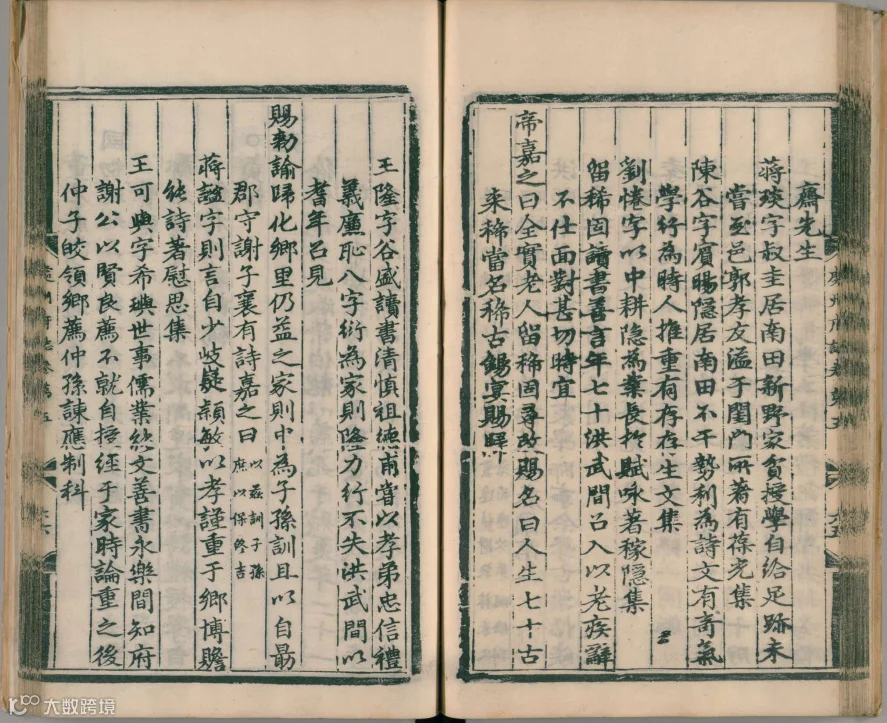 齋先生
蔣琰字叔圭居南田新野家貧授學自給足跡未
嘗至邑郭孝友溢于閨門所著有葆光集
陳谷字賓暘隱居南田不干勢利為詩文有奇氣
學行為時人推重有存存生文集
劉惓字以中耕隐為業長扵賦咏著稼隱集
留稀囙讀書善言年七十洪武間召入以老疾辭
不仕面對甚切時宜
帝嘉之曰全實老人留稀囙尋改賜名曰人生七十古
来稀當名稀古錫宴賜歸
王隆字谷盛讀書清慎祖徳甫嘗以孝弟忠信禮
義廉恥八字衍為家則隆力行不失洪武間以
耆年召見
賜勑諭歸化鄉里仍益之家則中為子孫訓且以自朂
郡守謝子襄有詩嘉之曰以茲訓子孫
庶以保終吉
蔣謐字則言自少岐嶷頴敏以孝謹重于鄉博贍
能詩著慰思集
王可與字希璵世事儒業能文善書永樂間知府
謝公以賢良薦不就自授經于家時論重之後
仲子皎領鄉薦仲孫諫應制科
大数跨境